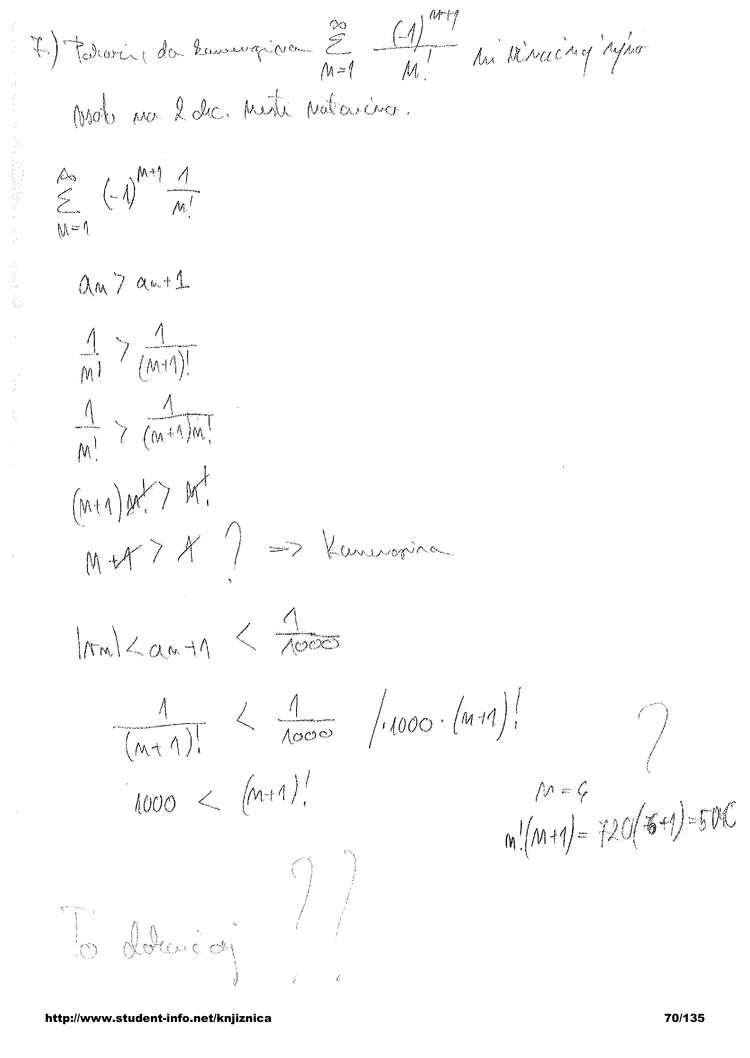 7.) Pokaži, da konvergira ∑_{n=1}^{∞} (-1)^{n+1} / n! in izračunaj njeno
vsoto na 2 dec. mesti natančno.
∑_{n=1}^{∞} (-1)^{n+1} 1/n!
an > an+1
1/n! > 1/(n+1)!
1/n! > 1/((n+1)n!)
(n+1)n! > n!
n+1 > 1 ? => Konvergira
|rn| < an+1 < 1/1000
1/(n+1)! < 1/1000 /·1000·(n+1)! ?
1000 < (n+1)!
n!(n+1) = 720(6+1) = 5040
To dokončaj ??
http://www.student-info.net/knjiznica 70/135